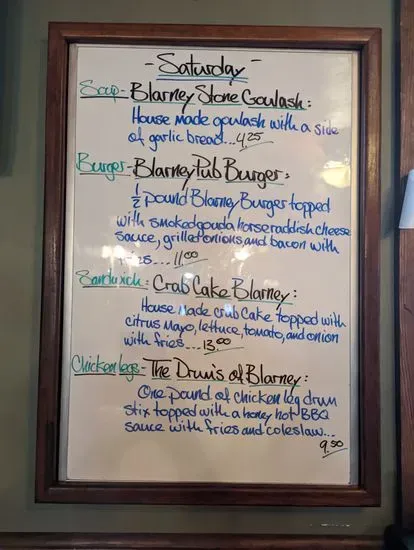 - Saturday -
Soup - Blarney Stone Goulash:
House Made goulash with a side
of garlic bread... 4.25
Burger - Blarney Pub Burger:
1/2 pound Blarney Burger topped
with smoked gouda horseraddish cheese
sauce, grilled onions and bacon with
fries.... 11.00
Sandwich: Crab Cake Blarney:
House Made crab Cake topped with
citrus Mayo, lettuce, tomato, and onion
with fries.... 13.00
Chicken legs - The Drum's of Blarney:
One pound of chicken leg drum
stix topped with a honey hot BBQ
sauce with fries and coleslaw...
9.50